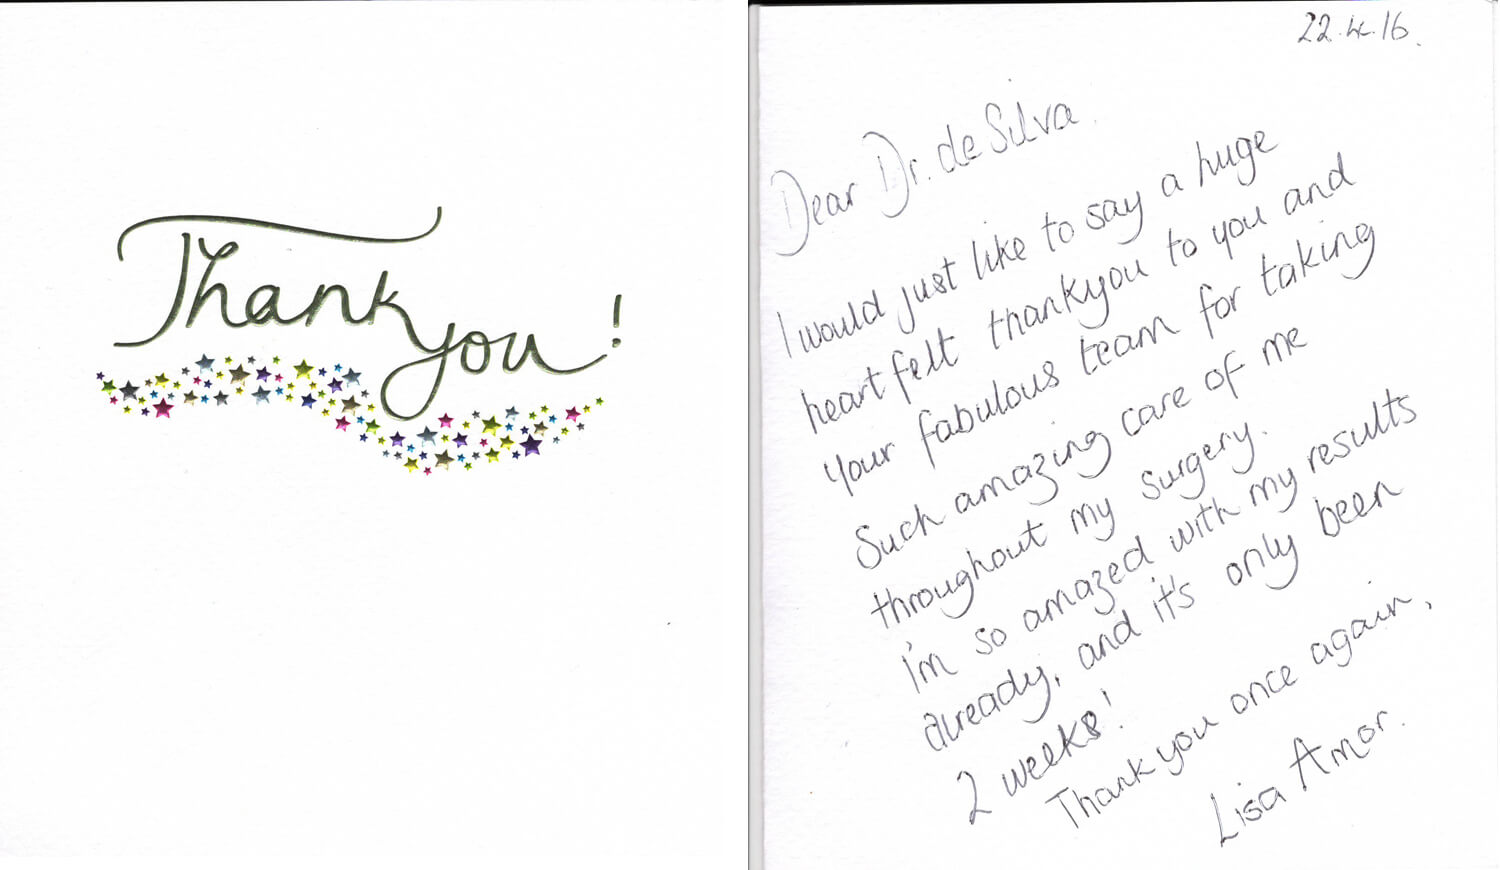 Thank
you!
22.4.16.
Dear Dr. de Silva.
I would just like to say a huge
heart felt thankyou to you and
your fabulous team for taking
Such amazing care of me
throughout my surgery.
I'm so amazed with my results
already, and it's only been
2 weeks!
Thank you once again,
Lisa Amor.